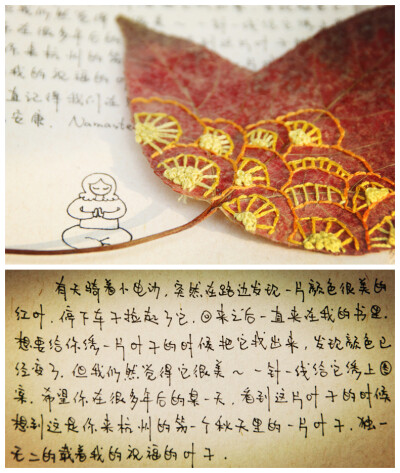 在很多年后的
你来杭州的
我的祝福的叶
直记得我们在
安康. Namaste
有天骑着小电沙,突然在路边发现一片颜色很美的
红叶.停下车子捡起了它.回来之后一直夹在我的书里.
想要给你绣一片叶子的时候把它找出来,发现颜色已
经变了,但我仍然觉得它很美~一针一线给它绣上图
案.希望你在很多年后的某一天.看到这片叶子的时候
想到这是你来杭州的第一个秋天里的一片叶子.独一
无二的载着我的祝福的叶子.